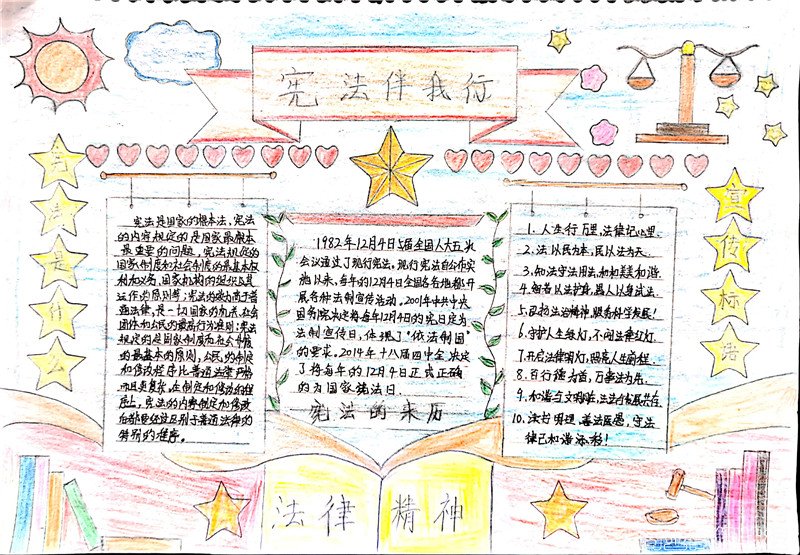 宪法伴我行
宪法是什么
宪法是国家的根本法，宪法
的内容规定的是国家最根本
最重要的问题，宪法规定的
国家制度和社会制度的最基本
和义务，国家机构的组织及其
运作的原则等，宪法的效力高于普
通法律，是一切国家的机关，社会
团体和公民的最高行为准则；宪法
规定的是国家制度和社会制度
的最基本的原则，公民的
和修改程序比普通法律严格
而且更复杂，在制定和修改的程
序上，宪法的内容制定和修改
特别的程序。
1982年12月4日五届全国人大五次
会议通过了现行宪法，现行宪法自公布实
施以来，每年的12月4日全国各地都开
展各种法制宣传活动。2001年中共中央
国务院决定将每年12月4日的宪日定为
法制宣传日，体现了“依法制国”
的要求。2014年十八届四中全决定
了将每年的12月4日正式正确
的为国家宪法日
宪法的来历
1. 人生行万里，法律记心里。
2. 法以民为本，民以法为天。
3. 知法守法用法，和和美美和谐
4.
5.
6. 守护人生绿灯，不闯法律红灯。
7. 开启法律明灯，照亮人生前程
8. 百行德为首，万事法为先。
9.
10.
律己和谐添彩！
宣传标语
法律精神